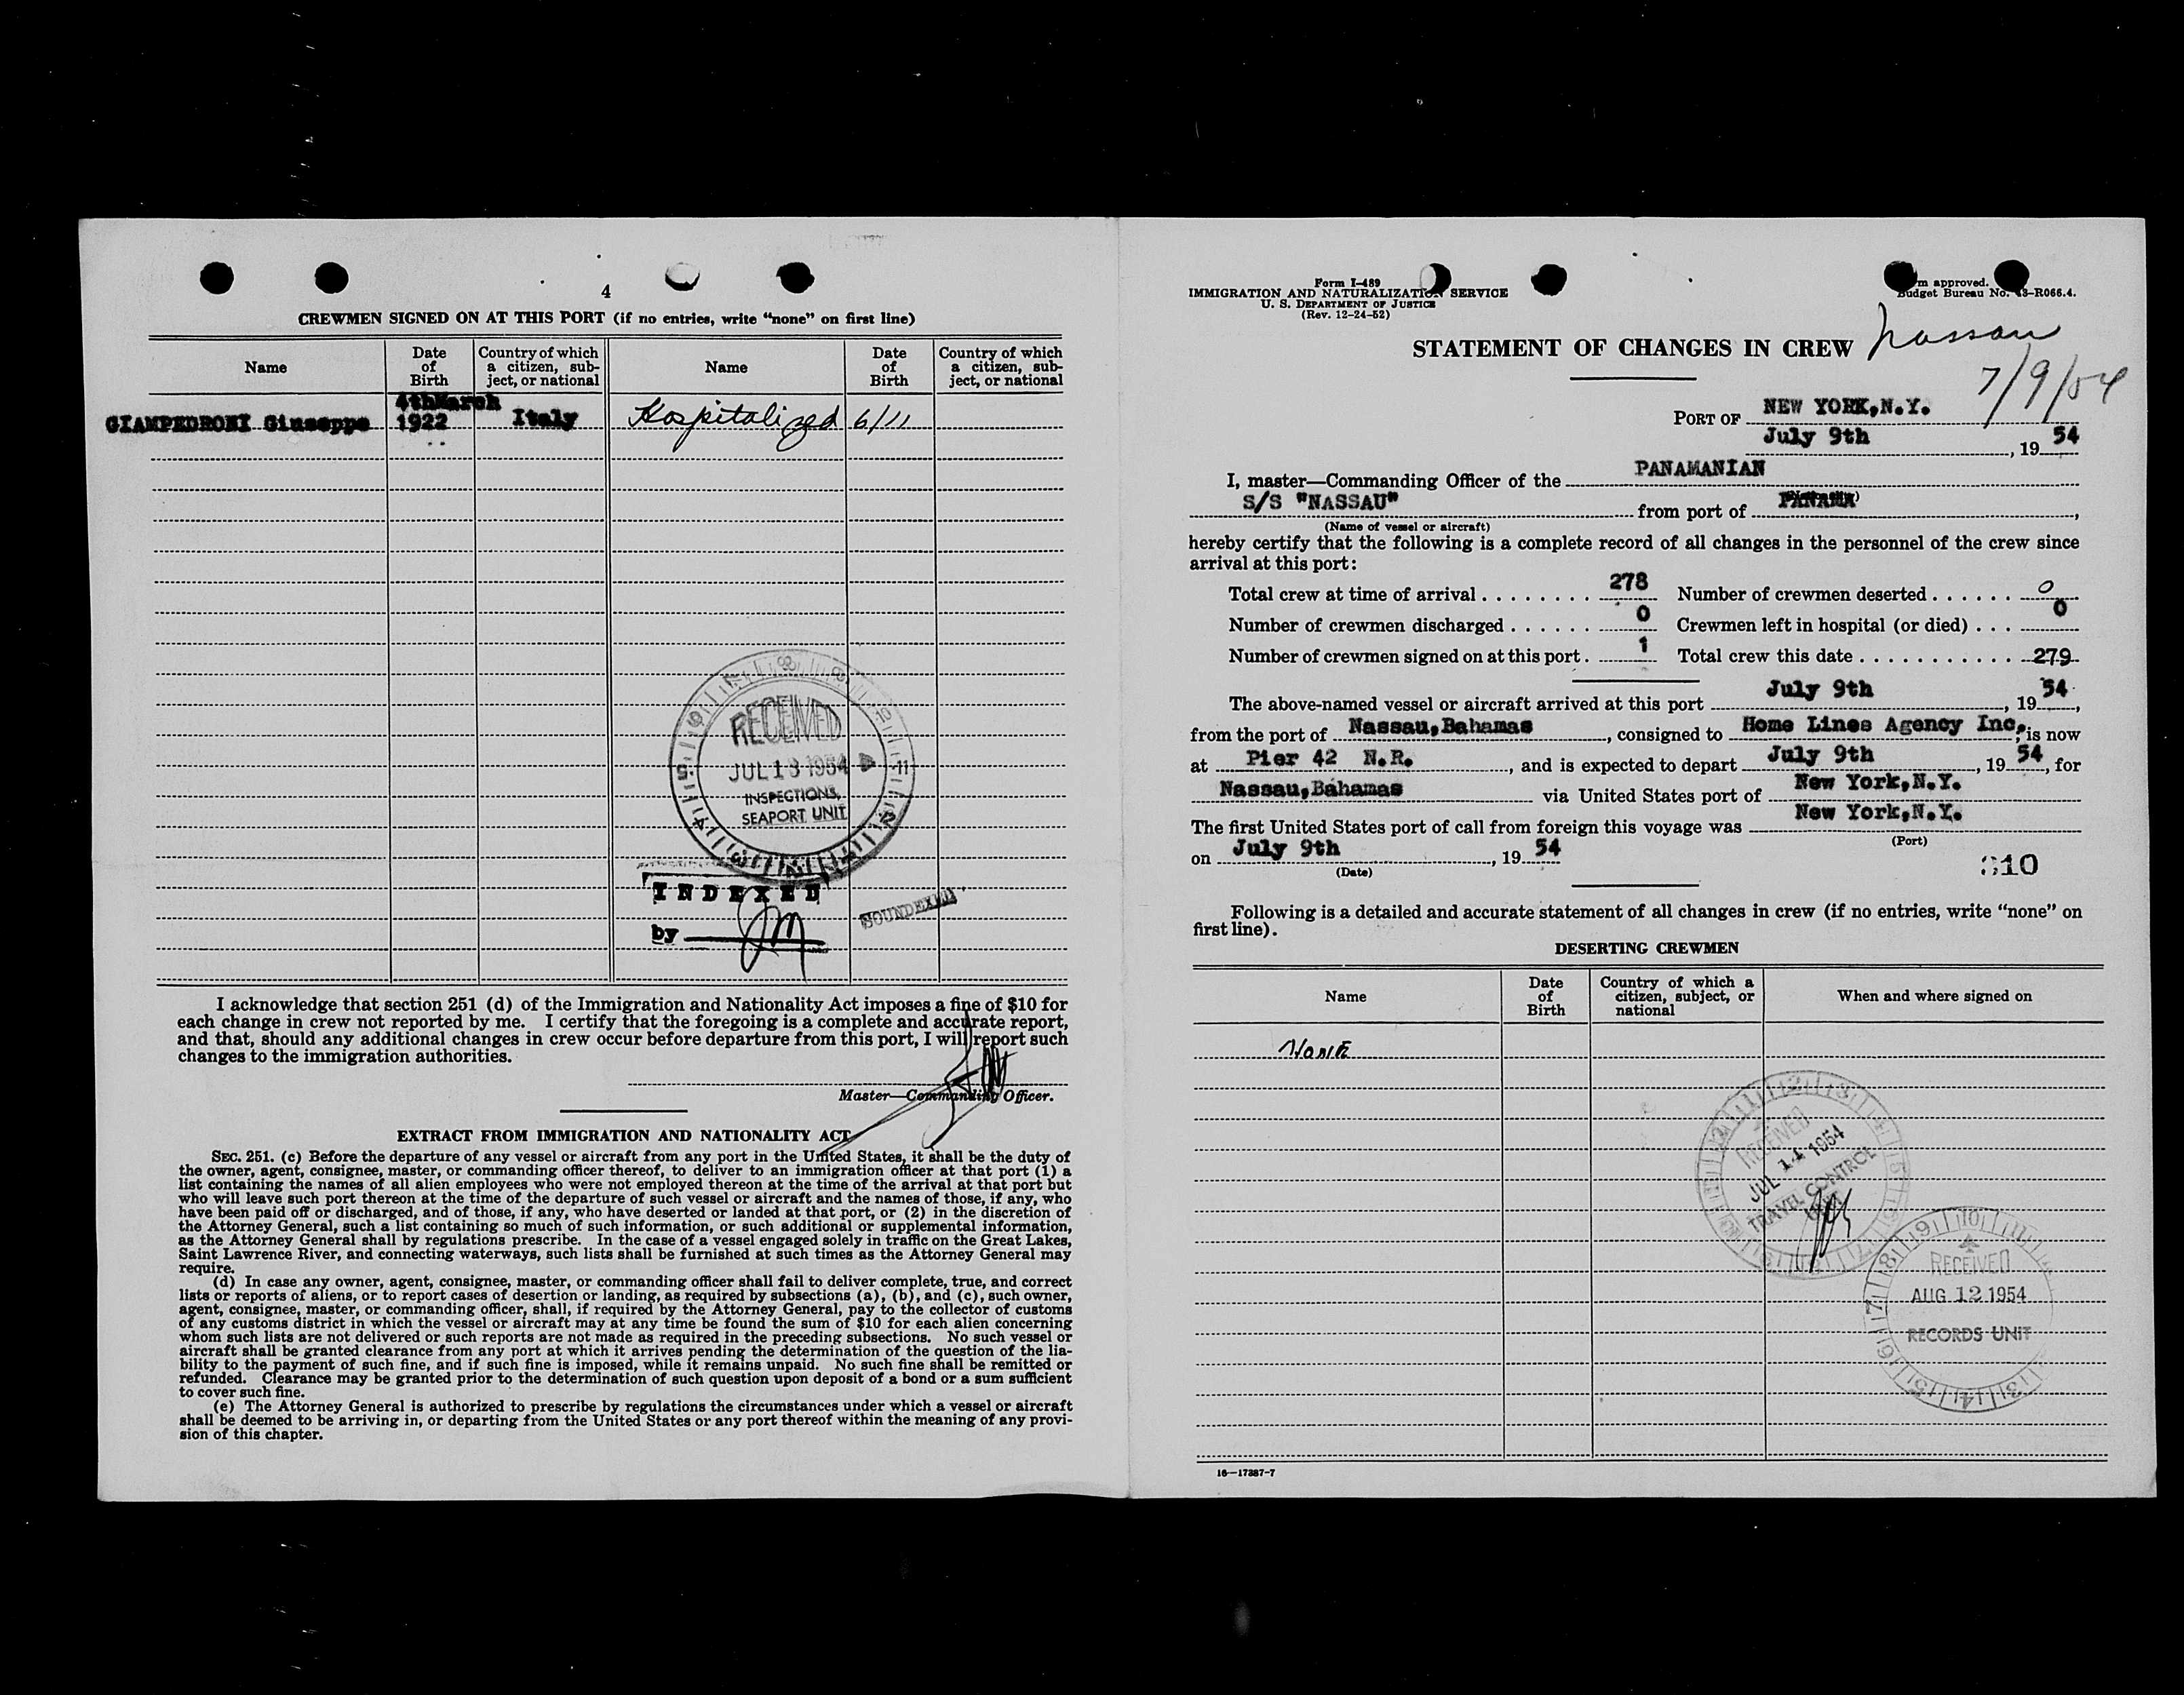 4
CREWMEN SIGNED ON AT THIS PORT (if no entries, write “none” on first line)
Name
Date of Birth
Country of which a citizen, subject, or national
Name
Date of Birth
Country of which a citizen, subject, or national
GIAMPEDRONI Giuseppe 4thMarch 1922 Italy Hospitalized 6/11
RECEIVED
JUL 13 1954
INSPECTIONS,
SEAPORT UNIT
INDEXED
by JM
SOUNDEXED
I acknowledge that section 251 (d) of the Immigration and Nationality Act imposes a fine of $10 for
each change in crew not reported by me. I certify that the foregoing is a complete and accurate report,
and that, should any additional changes in crew occur before departure from this port, I will report such
changes to the immigration authorities.
Master—Commanding Officer.
EXTRACT FROM IMMIGRATION AND NATIONALITY ACT
SEC. 251. (c) Before the departure of any vessel or aircraft from any port in the United States, it shall be the duty of
the owner, agent, consignee, master, or commanding officer thereof, to deliver to an immigration officer at that port (1) a
list containing the names of all alien employees who were not employed thereon at the time of the arrival at that port but
who will leave such port thereon at the time of the departure of such vessel or aircraft and the names of those, if any, who
have been paid off or discharged, and of those, if any, who have deserted or landed at that port, or (2) in the discretion of
the Attorney General, such a list containing so much of such information, or such additional or supplemental information,
as the Attorney General shall by regulations prescribe. In the case of a vessel engaged solely in traffic on the Great Lakes,
Saint Lawrence River, and connecting waterways, such lists shall be furnished at such times as the Attorney General may
require.
(d) In case any owner, agent, consignee, master, or commanding officer shall fail to deliver complete, true, and correct
lists or reports of aliens, or to report cases of desertion or landing, as required by subsections (a), (b), and (c), such owner,
agent, consignee, master, or commanding officer, shall, if required by the Attorney General, pay to the collector of customs
of any customs district in which the vessel or aircraft may at any time be found the sum of $10 for each alien concerning
whom such lists are not delivered or such reports are not made as required in the preceding subsections. No such vessel or
aircraft shall be granted clearance from any port at which it arrives pending the determination of the question of the lia-
bility to the payment of such fine, and if such fine is imposed, while it remains unpaid. No such fine shall be remitted or
refunded. Clearance may be granted prior to the determination of such question upon deposit of a bond or a sum sufficient
to cover such fine.
(e) The Attorney General is authorized to prescribe by regulations the circumstances under which a vessel or aircraft
shall be deemed to be arriving in, or departing from the United States or any port thereof within the meaning of any provi-
sion of this chapter.
Form I-489
IMMIGRATION AND NATURALIZATION SERVICE
U. S. DEPARTMENT OF JUSTICE
(Rev. 12-24-52)
approved.
Budget Bureau No. 43-R066.4.
STATEMENT OF CHANGES IN CREW Nassau
7/9/54
PORT OF NEW YORK,N.Y.
July 9th, 19 54
I, master—Commanding Officer of the PANAMANIAN
(Nationality)
S/S "NASSAU" from port of PANAMA,
(Name of vessel or aircraft)
hereby certify that the following is a complete record of all changes in the personnel of the crew since
arrival at this port:
Total crew at time of arrival 278 Number of crewmen deserted 0
Number of crewmen discharged 0 Crewmen left in hospital (or died) 0
Number of crewmen signed on at this port 1 Total crew this date 279
The above-named vessel or aircraft arrived at this port July 9th, 19 54,
from the port of Nassau,Bahamas, consigned to Home Lines Agency Inc.; is now
at Pier 42 N.R., and is expected to depart July 9th, 19 54, for
Nassau,Bahamas via United States port of New York,N.Y.
The first United States port of call from foreign this voyage was New York,N.Y.
(Port)
on July 9th, 19 54
(Date)
310
Following is a detailed and accurate statement of all changes in crew (if no entries, write “none” on
first line).
DESERTING CREWMEN
Name
Date of Birth
Country of which a citizen, subject, or national
When and where signed on
None
RECEIVED
JUL 14 1954
TRAVEL CONTROL
UNIT
RECEIVED
AUG 12 1954
RECORDS UNIT
16—17387-7